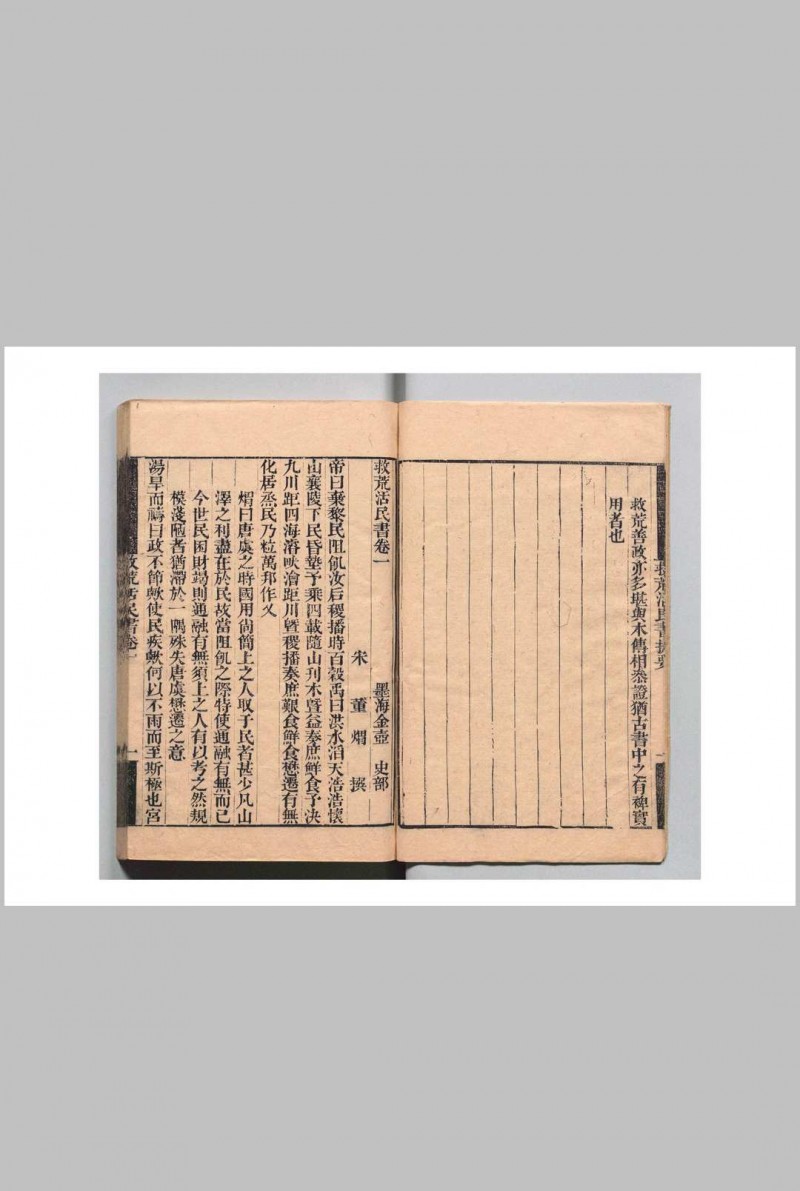 救荒活民書提要
一
救荒善政亦多堪與本傳相叅證猶古書中之有裨實
用者也
救荒活民書卷一
墨海金壺 史部
宋 董 煟 撰
帝曰棄黎民阻飢汝后稷播時百穀禹曰洪水滔天浩浩懷
山襄陵下民昏墊予乘四載隨山刋木暨益奏庶鮮食予決
九川距四海濬畎澮距川曁稷播奏庶艱食鮮食懋遷有無
化居烝民乃粒萬邦作乂
煟曰唐虞之時國用尙簡上之人取于民者甚少凡山
澤之利盡在於民故當阻飢之際特使通融有無而已
今世民困財竭則通融有無須上之人有以考之然規
模淺陋者猶滯於一隅殊失唐虞懋遷之意
湯旱而禱曰政不節歟使民疾歟何以不雨而至斯極也宮
救荒活民書卷一
一